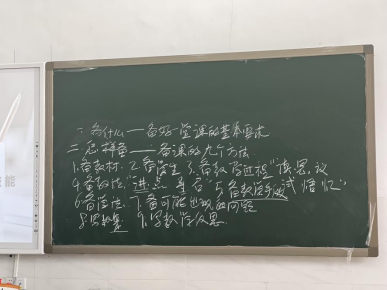 一、备什么——备好一堂课的基本要求
二、怎样备——备课的九个方法
1.备教材 2.备学生 3.备教学过程"读、思、议
4.备教法 进、点 5.备教学手段 试 悟 忆"
6.备学法 7.备可能出现的问题
8. 9.写教学反思
能